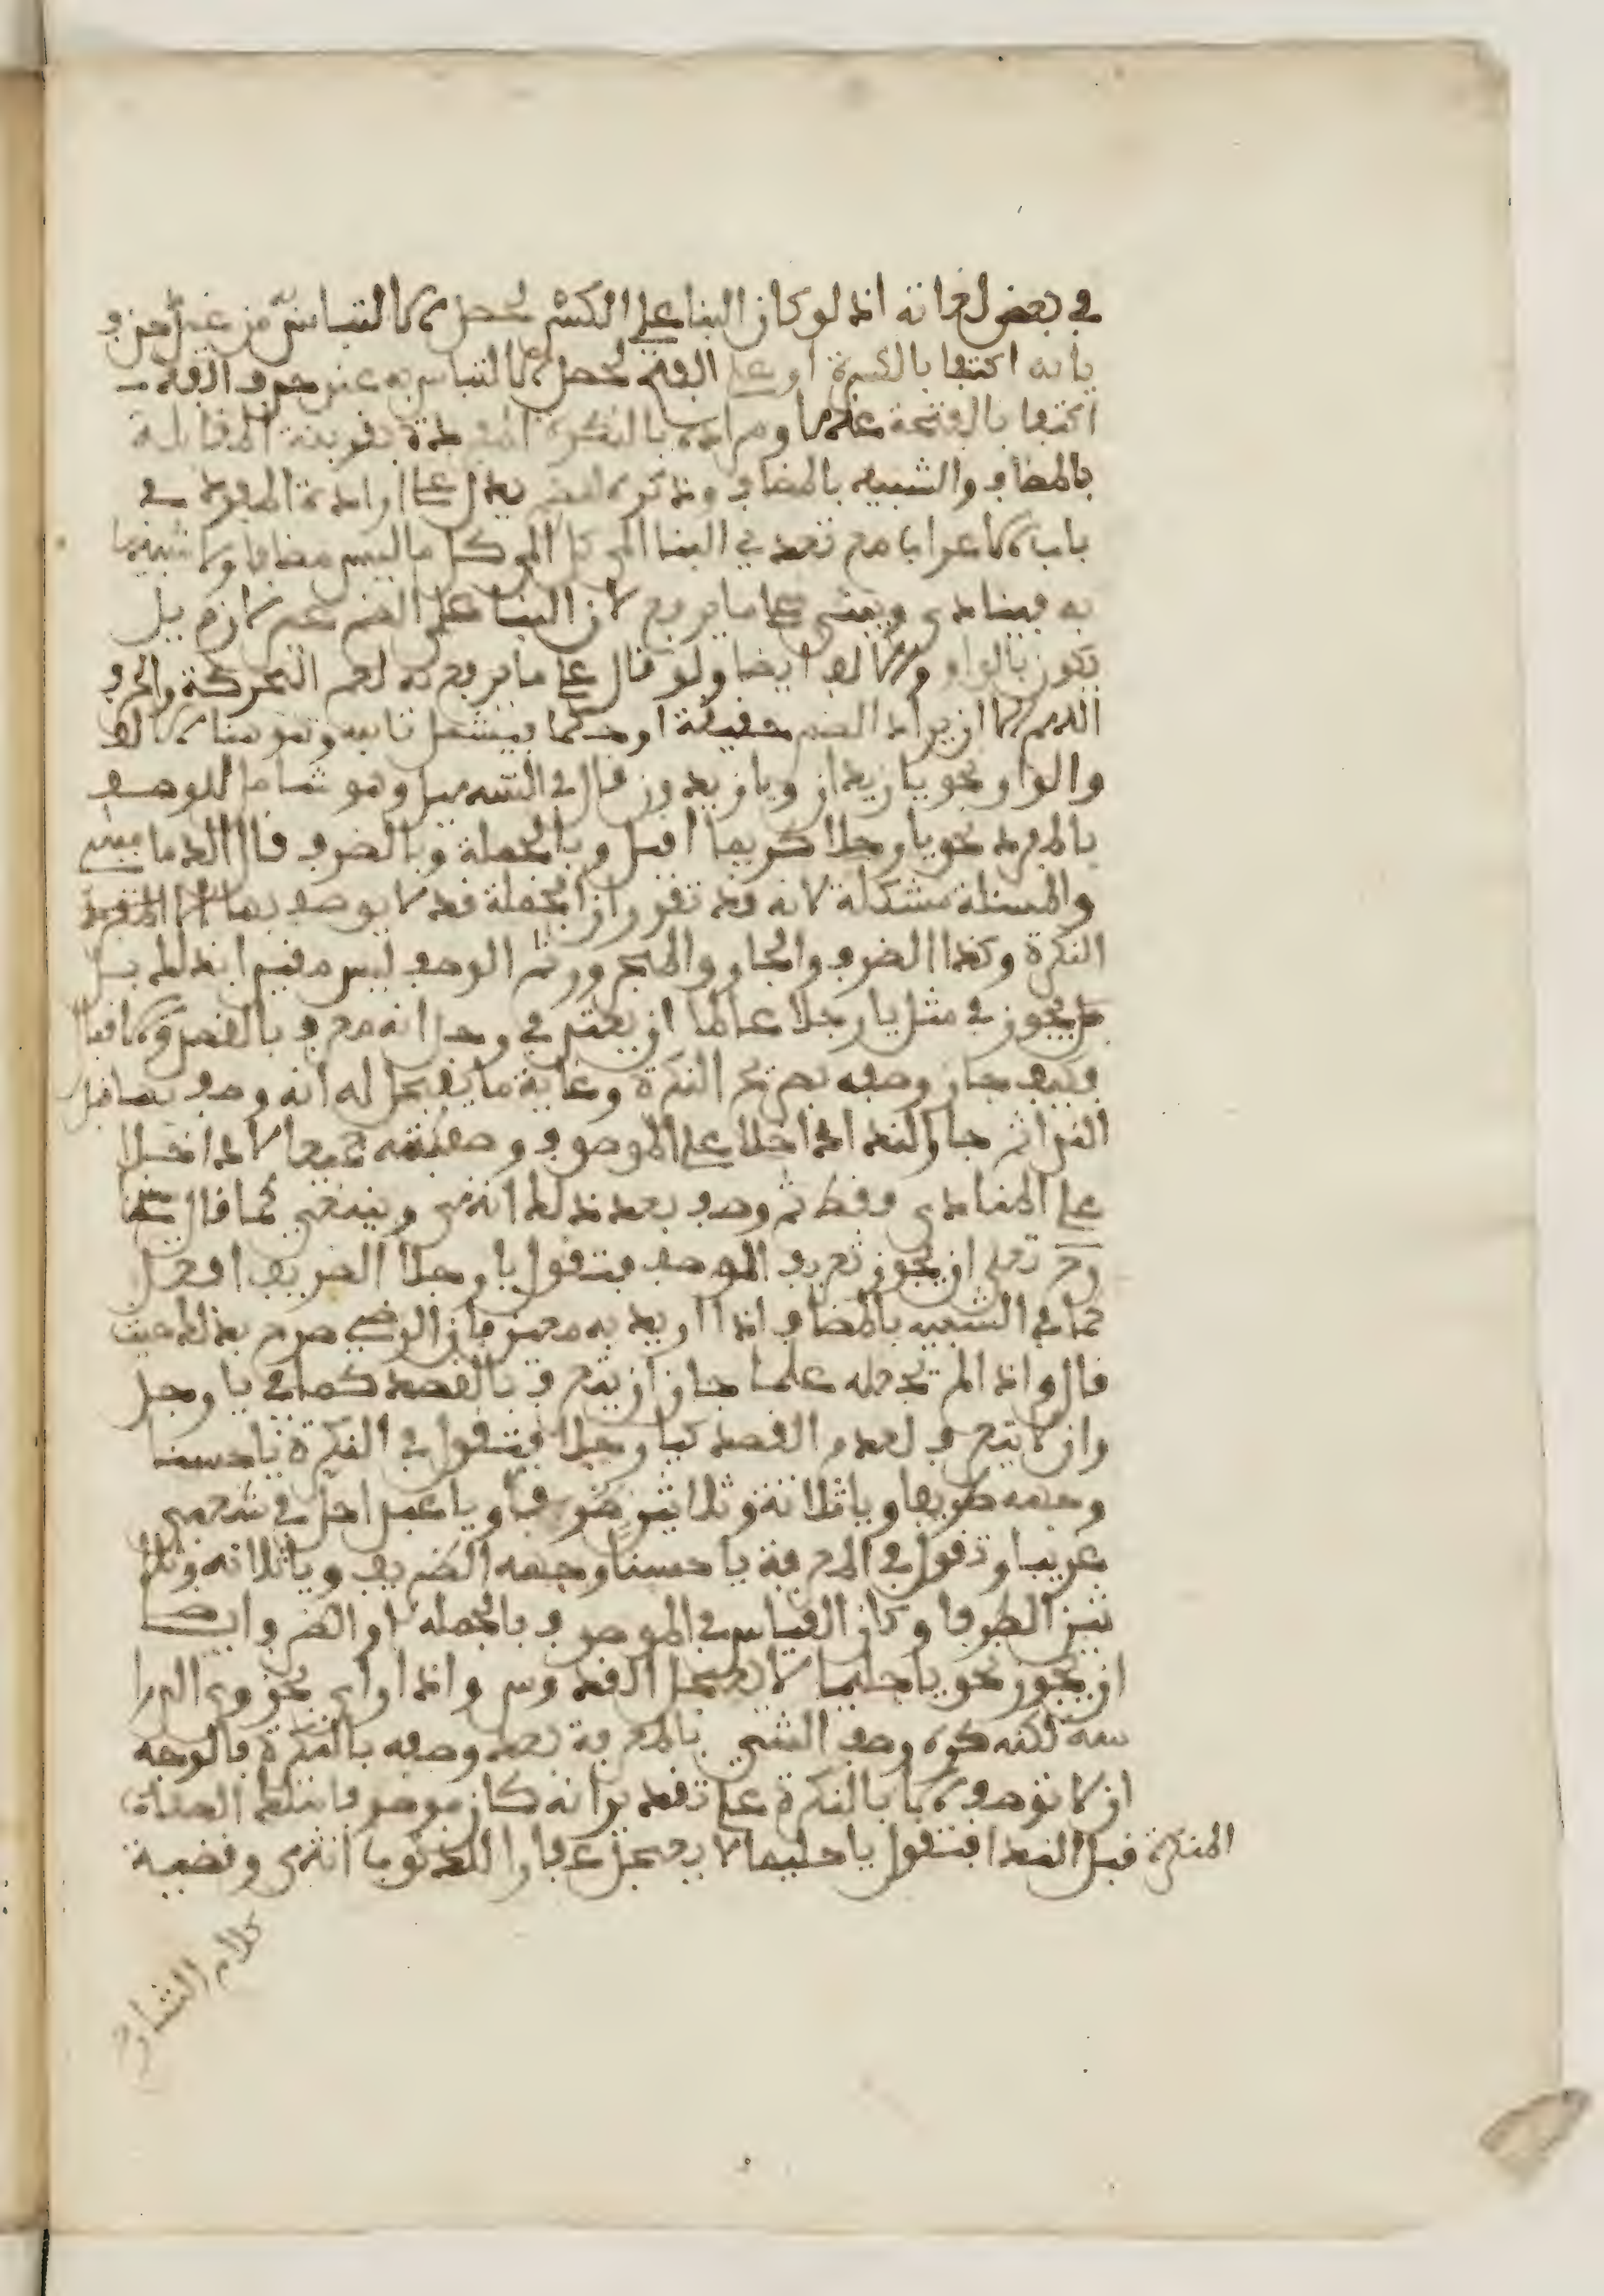 في بعض لغاته اذ لو كان البنا على الكسر لحصل الالتباس به عند حذف
يايه اكتفا بالكسرة او على الفتح لحصل الالتباس به عند حذف الفه
اكتفا بالفتحة عنها ومراده بالنكرة المفردة بقرينة المقابلة
بالمضاف والشبيه بالمضاف وذكره الضم يدل على ارادة المفرد في
باب الاعراب مع تعديه البنا الى كل ما ليس مضافا ولا شبيها
به فينادى ويبنى على ما يرفع لان البنا على الضم غير لازم بل
يكون بالواو والالف ايضا ولو قال على ما يرفع به لعم الحركة والحرف
اللهم الا ان يراد الضم حقيقة او حكما فيشمل نايبه وهو هنا الالف
والواو نحو يا زيدان ويا زيدون قال في التسهيل وهو شامل للوصف
بالمفرد نحو يا رجلا كريما اقبل وبالجملة وبالظرف قال الدماميني
والمسئلة مشكلة لانه قد تقرر ان الجملة قد لا يوصف بها الا المفرد
النكرة وكذا الظرف والجار والمجرور ثم الوصف ليس مقيدا بذلك بل
يجوز في مثل يا رجلا عالما ان يعتبر في رجلا انه معرف بالقصد والاقبال
فكيف جاز وصفه بصريح النكرة وغاية ما يتمحل له انه وصف بها قبل
الندا ثم جا والندا داخلا على الموصوف وصفته جميعا لا داخلا
على المنادى فقط ثم وصف بعد ذلك انتهى وينبغي كما قال شيخنا
رح تعلى ان يجوز تعريف الوصف فتقول يا رجلا الظريف افعل
كما في الشبيه بالمضاف اذا اريد به معين فان الرضي صرح بذلك حيث
قال واذا لم تجعله علما جاز ان يتعرف بالقصد كما في يا رجل
وان لا يتعرف لعدم القصد كيا رجلا فتقول في النكرة يا حسنا
وجهه ظريفا ويا ثلاثة وثلاثين ظريفا ويا عبرا حل في شعبى
غريبا وتقول في المعرفة يا حسنا وجهه الظريف ويا ثلاثة وثلا
ثين الظرفا وكان القياس في الموصوف بالجملة او الظرف ايضا
ان يجوز نحو يا حليما لا يعجل القدوس واذا راى بحزوى الدرا
سة لكنه كره وصف الشي بالمعرفة بعد وصفه بالنكرة فالوجه
ان لا توصف الا بالنكرة على تقدير انه كان موصوفا بتلك الصفات
المنكرة قبل الندا فتقول يا حليما لا يعجل غفارا للذنوب انتهى وقضية
كلام الشارح